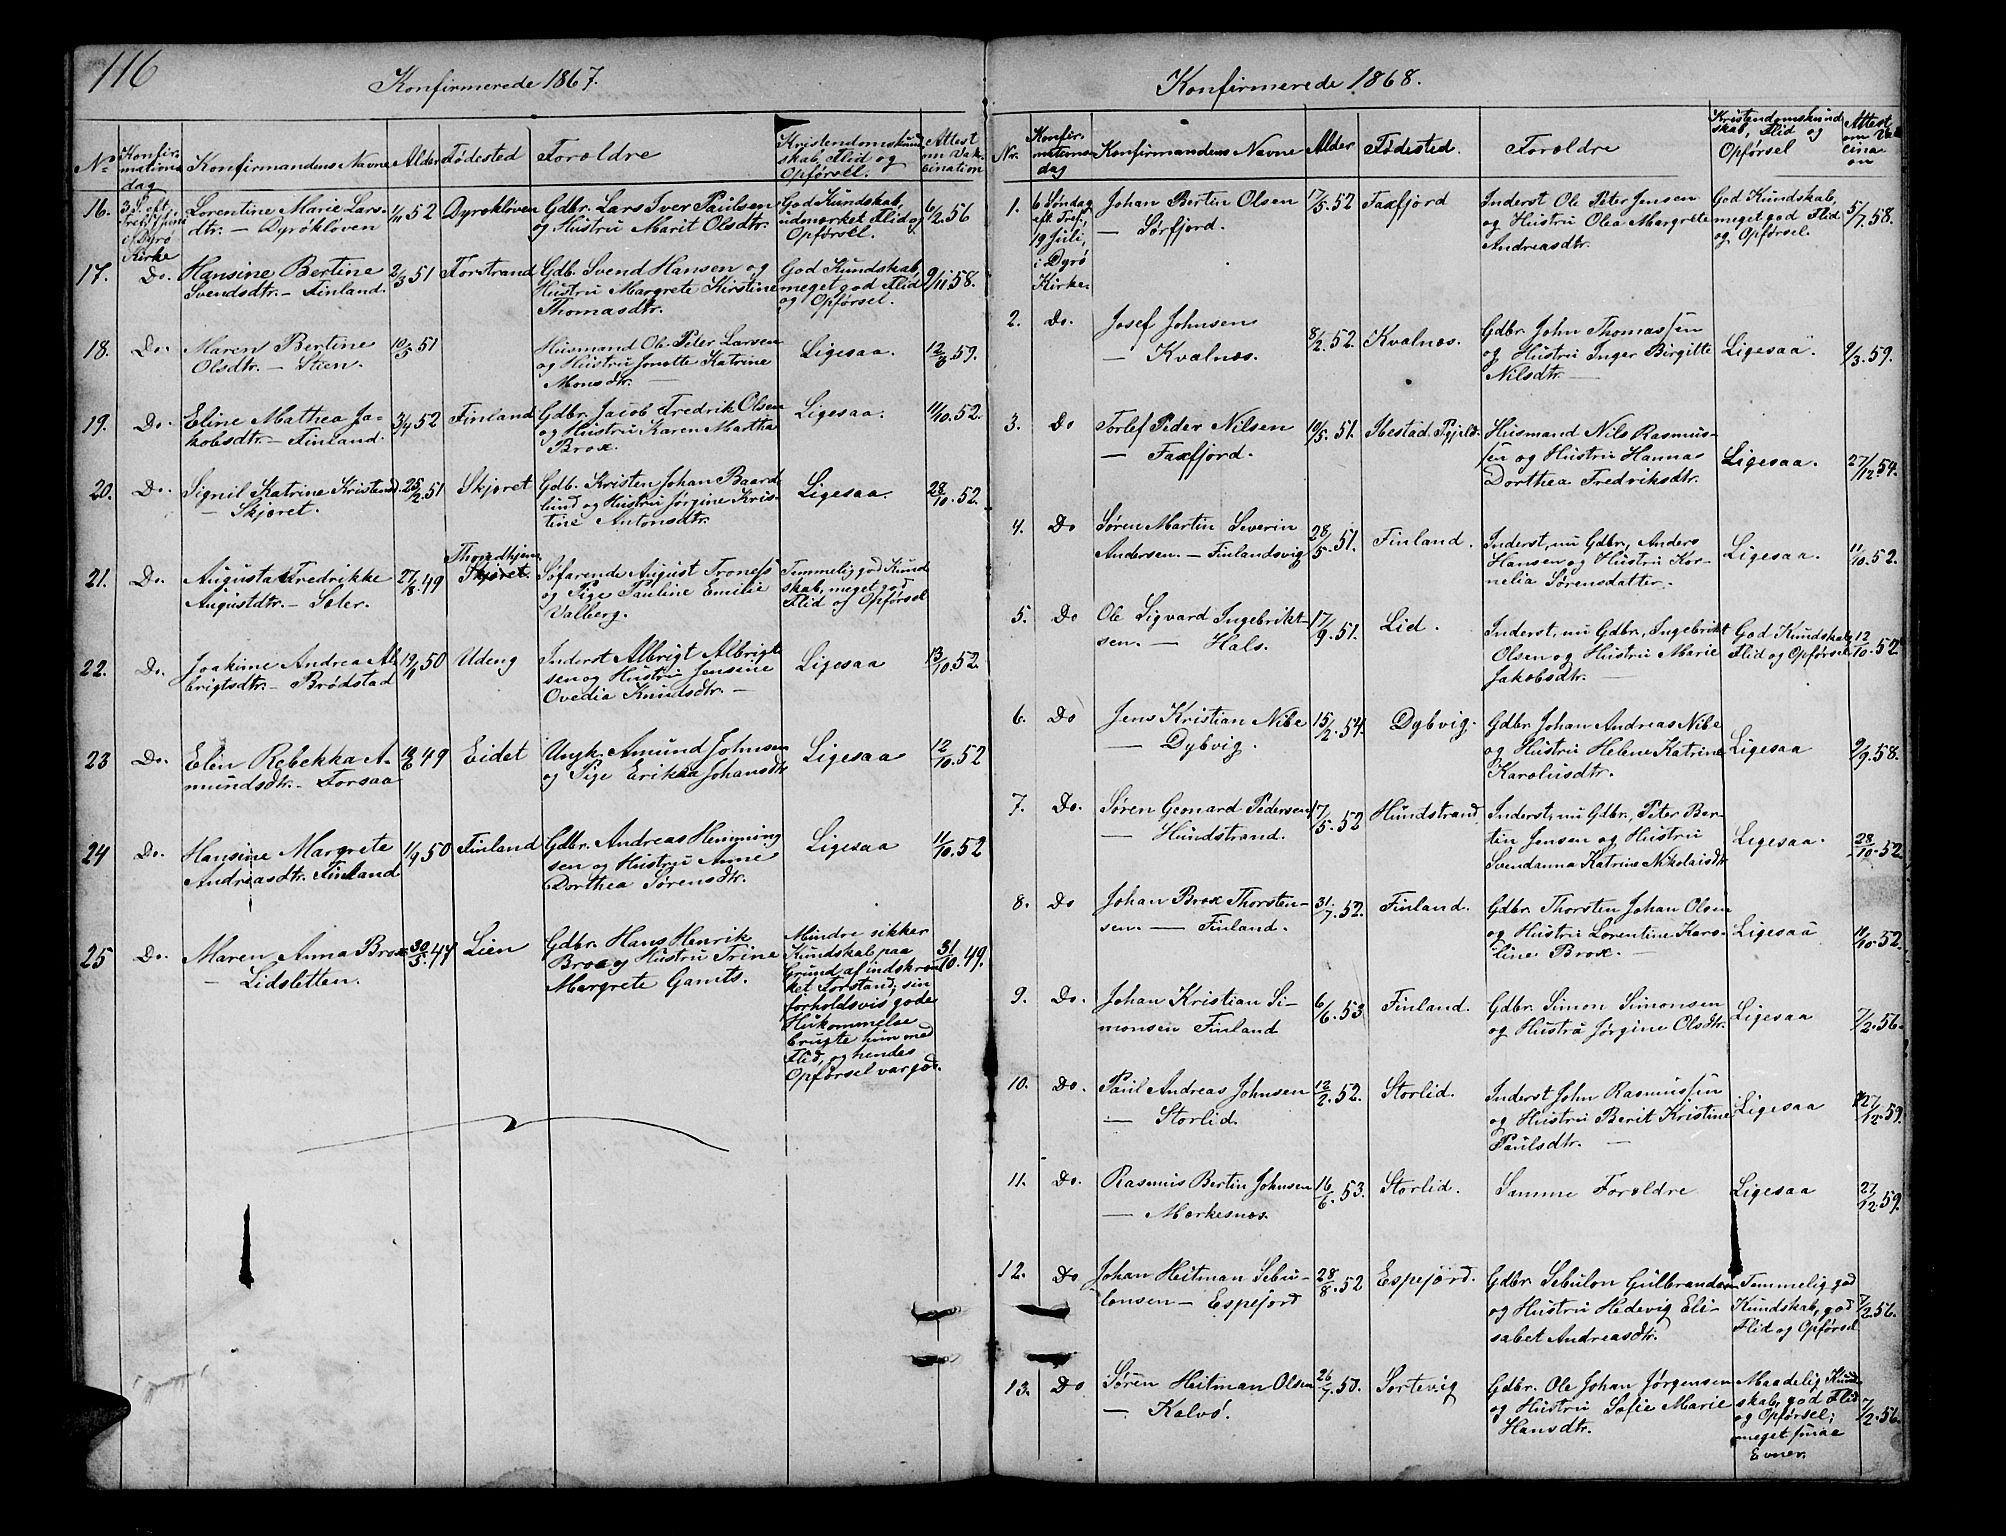 116
Konfirmerede 1867.
No
Konfir-
mations
dag
Konfirmandens Navne
Alder
Fødested
Forældre
Kristendomskund
skab, Flid og
Opførsel.
Attest
om Vak-
cination
16.
i Dyrø
Kirke
Lorentine Marie Lars-
dtr. — Dyrøkløven
1/11 52
Dyrøkløven
Gdbr. Lars Iver Paulsen
og Hustru Marit Olsdtr.
God Kundskab,
udmærket Flid og
Opførsel.
6/2.56
17.
Do.
Hansine Bertine
Svendsdtr. — Finland.
2/3 51
Forstrand
Gdb. Svend Hansen og
Hustru Margrete Kirstine
Thomasdtr.
God Kundskab,
meget god Flid
og Opførsel.
9/11.58.
18.
Do.
Maren Bertine
Olsdtr. — Steen.
10/5 51
Husmand Ole Peter Larsen
og Hustru Jonette Katrine
Monsdtr. —
Ligesaa.
12/3 59.
19.
Do.
Eline Mathea Ja-
kobsdtr. — Finland.
3/4 52
Finland
Gdbr. Jacob Fredrik Olsen
og Hustru Karen Martha
Brox.
Ligesaa.
11/10.52.
20.
Do.
Signil Katrine Kristensd.
— Skjæret.
25/2 51
Skjæret
Gdb. Kristen Johan Baard
lund og Hustru Jørgine Kris-
tine Antonsdtr.
Ligesaa.
28/10.52.
21.
Do.
Augusta Fredrikke
Augustdtr. — Sæter.
27/8 49
Throndhjem
Skjæret.
Søfarende August Troness
og Pige Pauline Emilie
Valberg.
Temmelig god Kund
skab, meget god
Flid og Opførsel
22.
Do.
Joakime Andrea Al
brigtsdtr. — Brødstad
50
Udeng
Inderst Albrigt Albrigt
sen og Hustru Jensine
Ovedia Knudsdtr. —
Ligesaa
13/10.52
23
Do.
Elen Rebekka A-
mundsdtr. — Forsaa
19/6 49
Eidet
Ungk. Amund Johnsen
og Pige Erikka Johansdtr.
Ligesaa
12/10.52
24
Do.
Hansine Margrete
Andreasdtr. Finland
1/9 50
Finland
Gdbr. Andreas Henning
sen og Hustru Anne
Dorthea Sørensdtr.
Ligesaa
11/10.52
25
Do.
Maren Anna Brox
— Lidsletten.
30/5.47
Lien
Gdbr. Hans Henrik
Brox og Hustru Trine
Margrete Gamts.
Mindre sikker
Kundskab paa
Grund af indskræn
ket Forstand; sin
forholdsvis gode
Hukommelse
brugte hun med
Flid, og hendes
Opførsel var god.
31/10.49.
Konfirmerede 1868.
Nr.
Konfir-
mations-
dag
Konfirmandens Navne
Alder
Fødested.
Forældre
Kristendomskund
skab, Flid og
Opførsel
Attest
om Vak
cina-
on
1.
6 Søndag
eft. Tref.
19 Juli,
i Dyrø
Kirke.
Johan Bertin Olsen
— Sørfjord.
17/5.52
Faxfjord
Inderst Ole Peter Jensen
og Hustru Olea Margrete
Andreasdtr.
God Kundskab,
meget god Flid
og Opførsel.
5/7.58.
2.
Do.
Josef Johnsen
— Kvalnæs.
8/2.52.
Kvalnæs.
Gdbr. John Thomassen
og Hustru Inger Birgitte
Nilsdtr. —
Ligesaa.
9/3.59.
3.
Do
Torlef Peder Nilsen
— Faxfjord.
10/5.51.
Ibestad Pgjeld.
Husmand Nils Rasmus-
sen og Hustru Hanna
Dorthea Fredriksdtr.
Ligesaa.
27/12.54.
4.
Do
Søren Martin Severin
Andersen. — Finlandsvig
28/5.51.
Finland.
Inderst, nu Gdbr., Anders
Hansen og Hustru Kor-
nelia Sørensdatter.
Ligesaa.
11/10.52.
5.
Do
Ole Sigvard Ingebrikt-
sen. — Hals.
17/9.51.
Lid.
Inderst, nu Gdbr., Ingebrikt
Olsen og Hustru Marie
Jakobsdtr. —
God Kundskab,
Flid og Opførsel.
12/10.52
6.
Do
Jens Kristian Nibe
— Dybvig.
15/2.54.
Dybvig.
Gdbr. Johan Andreas Nibe
og Hustru Helene Katrine
Karolusdtr.
Ligesaa
9/9.58.
7.
Do.
Søren Leonard Pedersen
— Hundstrand.
17/5.52
Hundstrand
Inderst, nu Gdbr., Peter Ber-
tin Jensen og Hustru
Svendanna Katrine Nikolaisdtr.
Ligesaa.
28/10.52
8.
Do
Johan Brox Thorsten-
sen. — Finland.
31/7.52.
Finland.
Gdbr. Thorsten Johan Olsen
og Hustru Lorentine Karo-
line Brox. —
Ligesaa
11/10.52.
9.
Do.
Johan Kristian Si-
monsen Finland
6/6.53
Finland.
Gdbr. Simon Simonsen
og Hustru Jørgine Olsdtr.
Ligesaa
7/2.56.
10.
Do.
Paul Andreas Johnsen
— Storlid.
12/2.52.
Storlid.
Inderst John Rasmussen
og Hustru Berit Kristine
Paulsdtr. —
Ligesaa
27/12.59.
11.
Do.
Rasmus Bertin Johnsen
— Mærkesnæs.
16/6.53.
Storlid.
Samme Forældre
Ligesaa
27/12.59.
12.
Do
Johan Heitman Sebu-
lonsen — Espejord
28/8.52
Espejord.
Gdbr. Sebulon Gulbrandsen
og Hustru Hedevig Eli-
sabet Andreasdtr.
Temmelig god
Kundskab, god
Flid og Opførsel
7/2.56.
13.
Do
Søren Heitman Olsen
— Kalvø.
26/7.50.
Sortevig
Gdbr. Ole Johan Jørgensen
og Hustru Sofie Marie
Hansdtr.
Maadelig Kund-
skab, god Flid
og Opførsel;
meget smaa
Evner.
7/2.56.